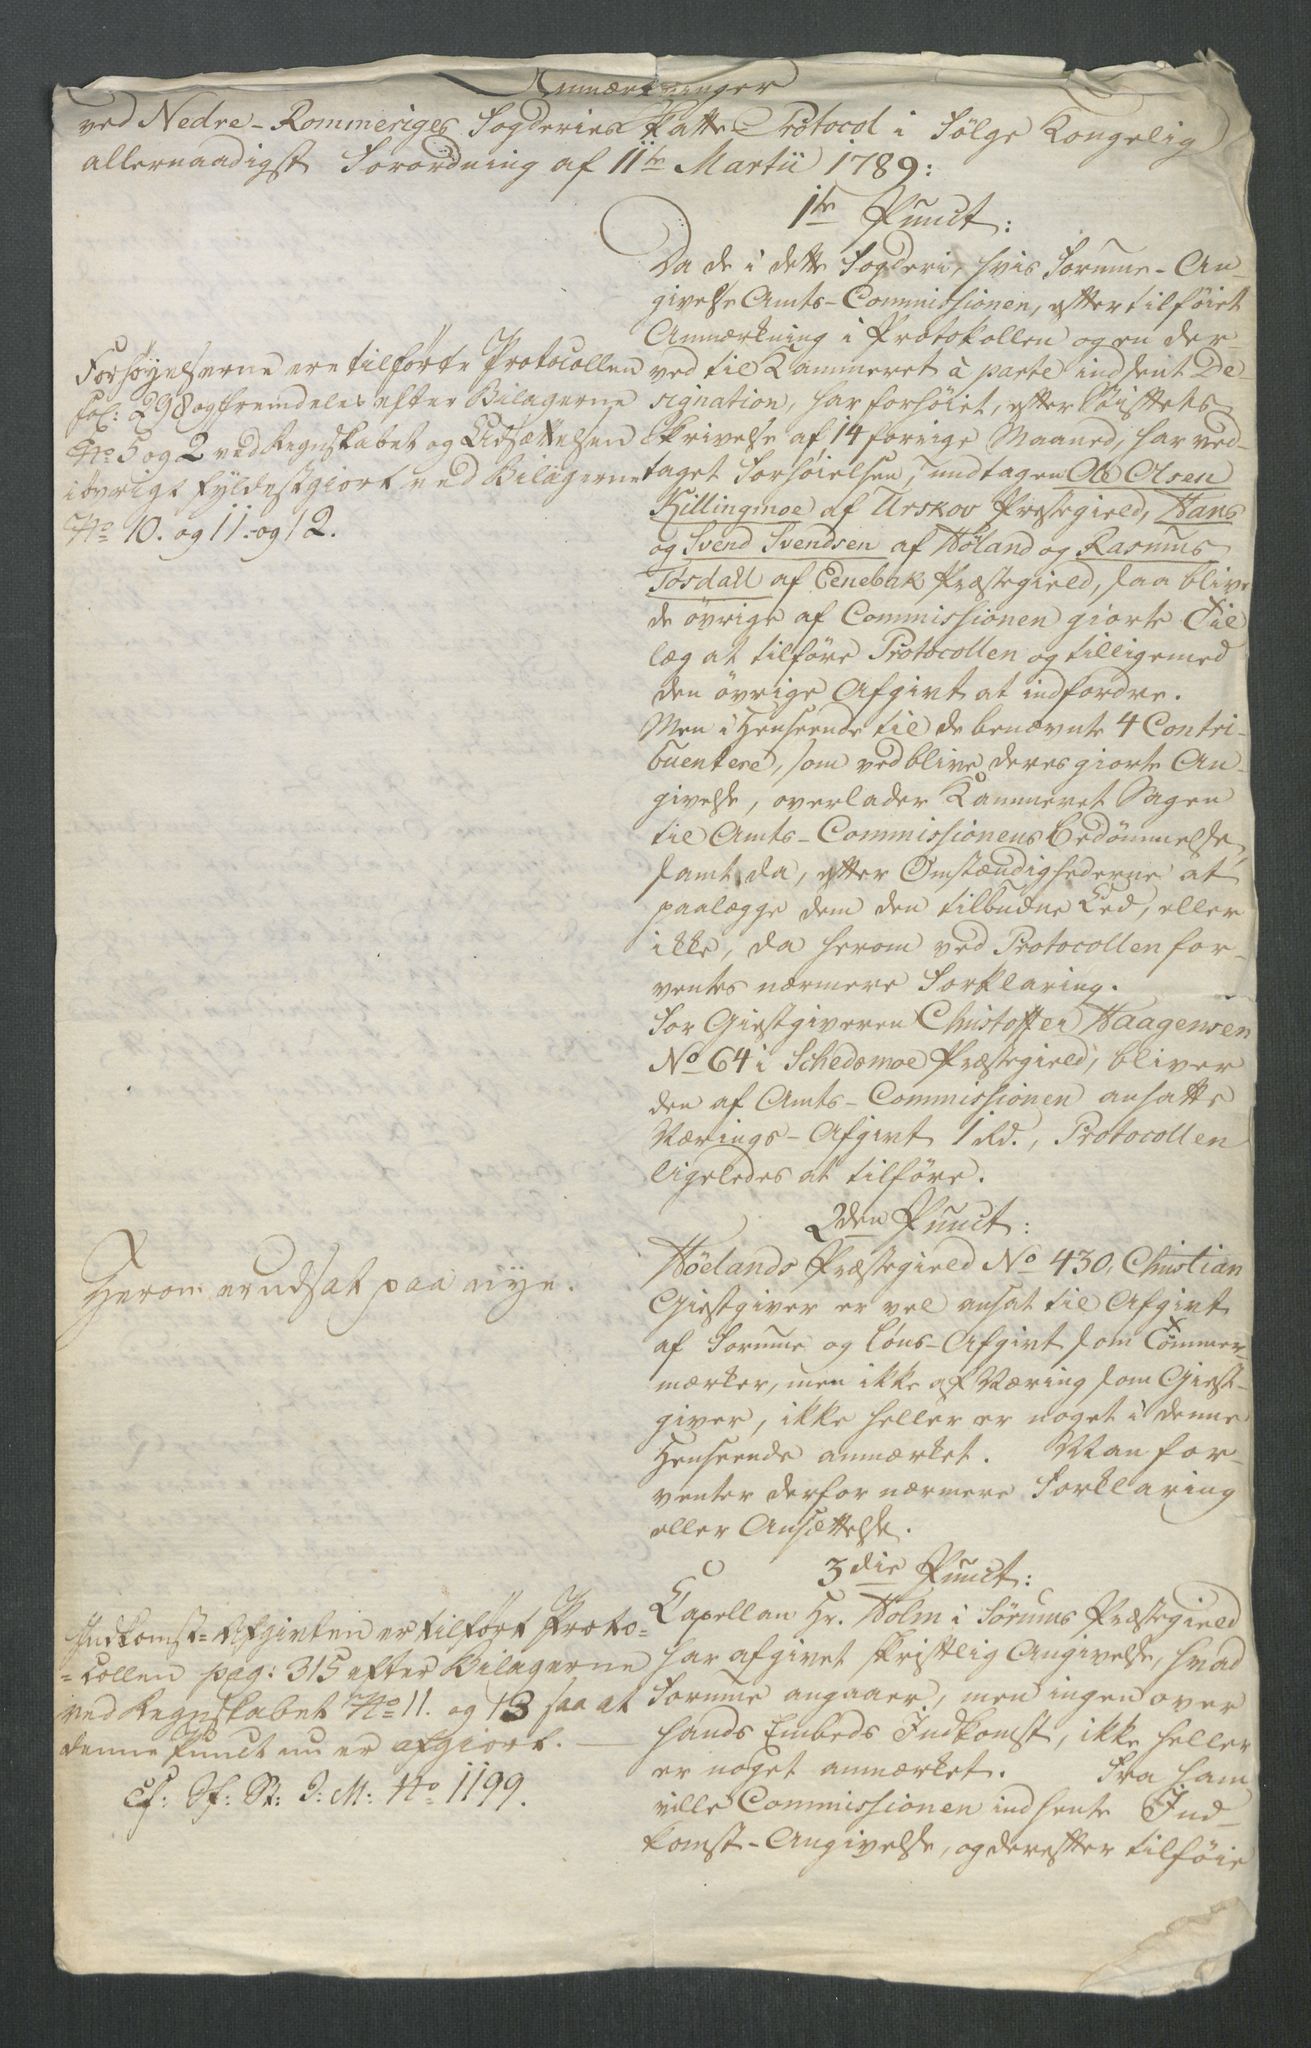 Anmærkninger
ved Nedre-Rommeriges Fogderies Skatte-Protocol i Følge Kongelig
allernaadigst Forordning af 11te Martii 1789:
1te Punct:
Da de i dette Fogderi, hvis Formue-An-
givelse Amts-Commissionen, efter tilføiet
Anmærkning i Protokollen og en der-
ved til Kammeret à parte indsent De-
signation, har forhøiet, efter Stiftets
Skrivelse af 14 forrige Maaned, har ved-
taget Forhøielsen, undtagen Ole Olsen
Killingmoe af Urskov Præstegield, Hans
og Svend Svendsen af Høland og Rasmus
Tosdall af Eenebak Præstegield, saa blive
de øvrige af Commissionen giorte Til
læg at tilføre Protocollen og tilligemed
den øvrige Afgivt at indfordre.
Men i Henseende til de benævnte 4 Contri-
buentere, som vedblive deres giorte An-
givelse, overlader Kammeret Sagen
til Amts-Commissionens Bedømmelse,
samt da, efter Omstændighederne at
paalægge dem den tilbudne Eed, eller
ikke, da herom ved Protocollen for-
ventes nærmere Forklaring.
For Giestgiveren Christoffer Haagensen
No 64 i Schedsmoe Præstegield, bliver
den af Amts-Commissionen ansatte
Nærings-Afgivt 1 Rd., Protocollen
ligeledes at tilføre.
2den Punct:
Hølands Præstegield No 430, Christian
Giestgiver er vel ansat til Afgivt
af Formue og Løns-Afgivt som Tømmer-
mærker, men ikke af Næring som Giest-
giver, ikke heller er noget i denne
Henseende anmærket. Man for-
venter derfor nærmere Forklaring
eller Ansættelse.
3die Punct:
Capellan Hr. Holm i Sørums Præstegield
har afgivet skriftlig Angivelse, hvad
Formue angaaer, men ingen over
hands Embeds Indkomst, ikke heller
er noget anmærket. Fra ham
ville Commissionen indhente Ind-
komst-Angivelse, og derefter tilføie
Forhøyelserne ere tilførte Protocollen
fol: 298 og fremdeles efter Bilagerne
No 5 og 2 ved Regnskabet og Udsættelsen
i øvrigt fyldestgiort ved Bilagerne
No 10. og 11. og 12.
Herom er udsat paa nye.
Indkomst-Afgivten er tilført Proto-
collen pag: 315 efter Bilagerne
ved Regnskabet No 11. og 13 saa at
denne Punct nu er afgiort.
Cf: Sf: St: J: M: No 1199.